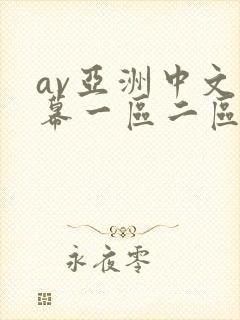 av亞洲中文
幕一區二區
永夜零